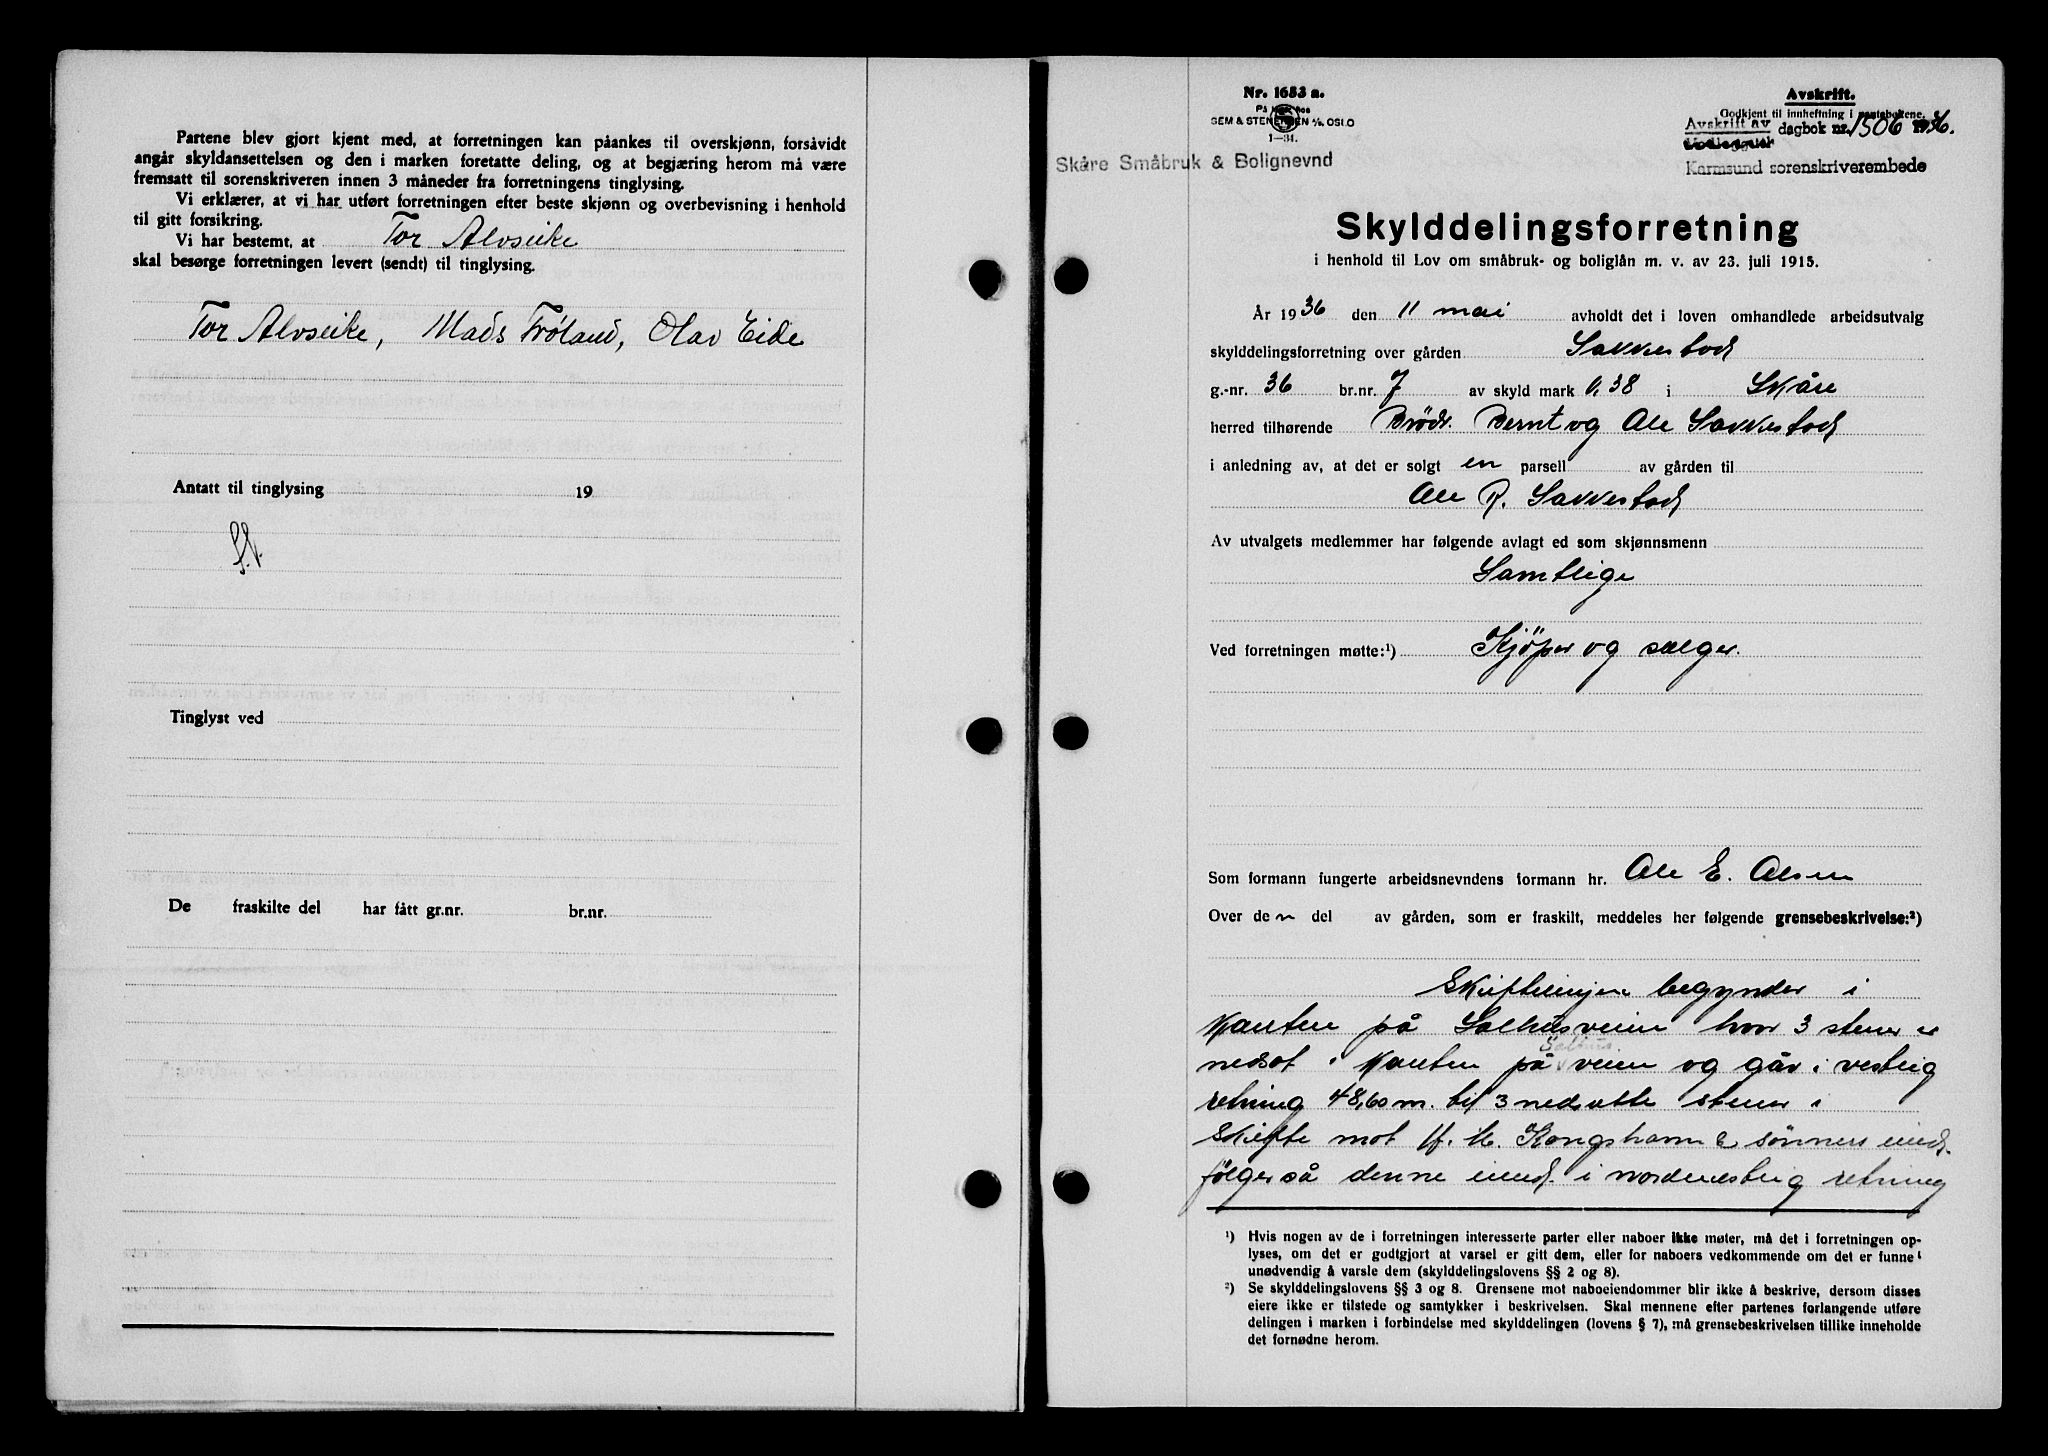 Partene blev gjort kjent med, at forretningen kan påankes til overskjønn, forsåvidt
angår skyldansettelsen og den i marken foretatte deling, og at begjæring herom må være
fremsatt til sorenskriveren innen 3 måneder fra forretningens tinglysing.
Vi erklærer, at vi har utført forretningen efter beste skjønn og overbevisning i henhold
til gitt forsikring.
Vi har bestemt, at Tor Alvseike
skal besørge forretningen levert (sendt) til tinglysing.
Tor Alvseike, Mads Frøland, Olav Eide
Antatt til tinglysing 19
Tinglyst ved
De fraskilte del har fått gr.nr. br.nr.
Nr. 1653 a.
SEM & STENERSEN A/S. OSLO
1—34.
Skåre Småbruk & Bolignevnd
Avskrift.
Godkjent til innheftning i pantebøkene.
Avskrift av dagbok nr. 1506 1936.
Karmsund sorenskriverembede
Skylddelingsforretning
i henhold til Lov om småbruk- og boliglån m. v. av 23. juli 1915.
År 1936 den 11 mai avholdt det i loven omhandlede arbeidsutvalg
skylddelingsforretning over gården Sakkestad
g.-nr. 36 br.nr. 7 av skyld mark 0,38 i Skåre
herred tilhørende Brødr. Bernt og Ole Sakkestad
i anledning av, at det er solgt en parsell av gården til
Ole R. Sakkestad
Av utvalgets medlemmer har følgende avlagt ed som skjønnsmenn
Samtlige
Ved forretningen møtte:¹) Kjöper og sælger.
Som formann fungerte arbeidsnevndens formann hr. Ole E. Olsen
Over den del av gården, som er fraskilt, meddeles her følgende grensebeskrivelse:²)
Skiftelinjen begynder i
Kanten på Salhusveien hvor 3 stener er
nedsat i Kanten på Salhus veien og går i vestlig
retning 48,60 m. til 3 nedsatte stener i
Skifte mot H. M. Kongshavn & sønners eiend.
følger så denne eiend. i nordvestlig retning
¹) Hvis nogen av de i forretningen interesserte parter eller naboer ikke møter, må det i forretningen op-
lyses, om det er godtgjort at varsel er gitt dem, eller for naboers vedkommende om det er funnet
unødvendig å varsle dem (skylddelingslovens §§ 2 og 8).
²) Se skylddelingslovens §§ 3 og 8. Grensene mot naboeiendommer blir ikke å beskrive, dersom disses
eiere ikke er tilstede og samtykker i beskrivelsen. Skal mennene efter partenes forlangende utføre
delingen i marken i forbindelse med skylddelingen (lovens § 7), må grensebeskrivelsen tillike inneholde
det fornødne herom.